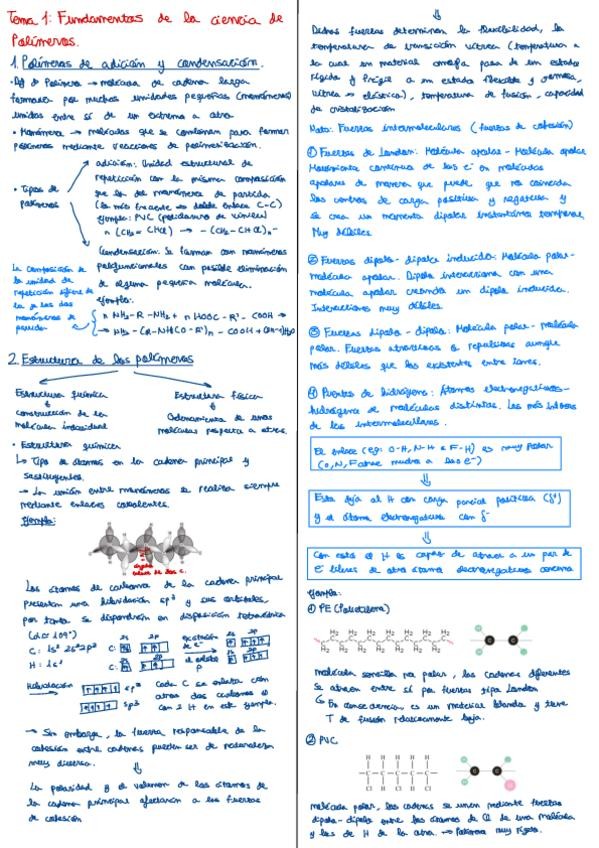 Tema 1: Fundamentos de la ciencia de
Polímeros.
1. Polímeros de adición y condensación.
Polímero → molécula de cadena larga
formada por muchas unidades pequeñas (monómeros)
unidas entre sí de un extremo a otro
• Monómero → moléculas que se combinan para formar
polímeros mediante reacciones de polimerización.
• Tipos de
polímeros
adición: Unidad estructural de
repetición con la misma composición
que la del monómero de partida
(lo más frecuente → doble enlace C-C)
ejemplo: PVC (policloruro de vinilo)
n (CH2 = CHCl) → -(CH2-CHCl)n-
Condensación: Se forman con monómeros
polifuncionales con posible eliminación
de alguna pequeña molécula.
ejemplo:
La composición de
la unidad de
repetición difiere de
la de los dos
monómeros de
partida
n NH2-R-NH2 + n HOOC-R'-COOH →
2. Estructura de los polímeros
Estructura química
construcción de la
molécula individual
Estructura física
Ordenamiento de unas
moléculas respecto a otras.
• Estructura química
↳ Tipo de átomos en la cadena principal y
sustituyentes.
→ La unión entre monómeros se realiza siempre
mediante enlaces covalentes.
Ejemplo:
Los átomos de carbono de la cadena principal
presentan una hibridación sp3 y sus orbitales,
por tanto se dispondrán en disposición tetraédrica
C: 1s2 2s2 2p2
H: 1s1
2s 2p
Hibridación
sp3
sp3
Cada C se enlaza con
otros dos carbonos o
con 2 H en este ejemplo.
→ Sin embargo, la fuerza responsable de la
cohesión entre cadenas pueden ser de naturaleza
muy diversa.
⇓
La polaridad y el volumen de los átomos de
la cadena principal afectarán a las fuerzas
de cohesión
⇓
Dichas fuerzas determinan la flexibilidad, la
temperatura de transición vítrea (temperatura a
la cual un material amorfo pasa de un estado
rígido y frágil a un estado flexible y
vítrea → elástica), temperatura de fusión, capacidad
de cristalización
Nota: Fuerzas intermoleculares (fuerzas de cohesión)
① Fuerzas de London: Molécula apolar - Molécula apolar
Movimiento continuo de los e- en moléculas
apolares de manera que puede que no coincida
los centros de carga positiva y negativa y
se crea un momento dipolar instantáneo temporal
Muy débiles.
② Fuerzas dipolo - dipolo inducido: Molécula polar-
molécula apolar. Dipolo interacciona con una
molécula apolar creando un dipolo inducido.
Interacciones muy débiles.
③ Fuerzas dipolo - dipolo: Molécula polar - molécula
polar. Fuerzas atractivas o repulsivas aunque
más débiles que las existentes entre iones.
④ Puentes de hidrógeno: Átomos electronegativos-
hidrógeno de moléculas distintas. Las más intensas
de las intermoleculares.
El enlace (eg: O-H, N-H o F-H) es muy polar
(O, N, F atrae mucho a los e-)
⇓
Esto deja al H con carga parcial positiva (δ+)
y el átomo electronegativo con δ-
⇓
Con esto el H es capaz de atraer a un par de
e- libres de otro átomo electronegativo cercano
ejemplo:
① PE (Polietileno)
molécula sencilla no polar, las cadenas diferentes
se atraen entre sí por fuerzas tipo London
↳ En consecuencia, es un material blando y tiene
T de fusión relativamente baja.
② PVC
H H H H H
-C-C-C-C-C-
Cl H Cl H Cl
molécula polar, las cadenas se unen mediante fuerzas
dipolo-dipolo entre los átomos de Cl de una molécula
y los de H de la otra. → Polímero muy rígido.